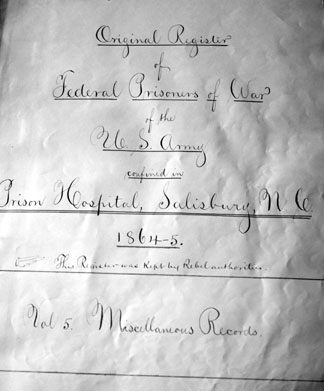 Original Register
of
Federal Prisoners of War
of the
U. S. Army
confined in
Prison Hospital, Salisbury, N C
1864-5.
This Register was Kept by Rebel authorities.
Vol 5. Miscellaneous Records.